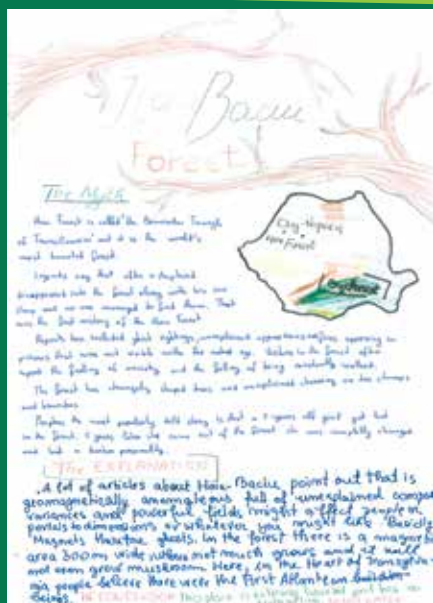 Hoia Baciu
Forest
The Myth
Hoia Forest is called "the Bermuda Triangle
of Transilvania" and it is the world's
most haunted forest.
Legends say that after a shepherd
disappeared into the forest along with his
sheep and no one managed to find them. That
was the first mystery of the Hoia Forest.
Reports have included ghost sightings, unexplained apparitions, appearing in
pictures that were not visible with the naked eye. Visitors to the forest often
report the feeling of anxiety and the feeling of being constantly watched.
The forest has strangely shaped trees and unexplained charring on tree stumps
and branches.
Perhaps the most popularly told story is that a 5 years old girl got lost
in the forest. 5 years later she came out of the forest she was completely changed
and had a broken personality.
Cluj-Napoca
Forest
The EXPLANATION
A lot of articles about Hoia-Baciu point out that is
geomagnetically anomaleous full of unexplained compas
variances and powerful fields might affect people in
portals to dimensions or whatever you might like. Basicly
Magnets therefore ghosts. In the forest there is a magnetic
area 300m wide where not much grows and it will
not even grow mushroom. Here, in the Heart of Transylva-
nia people believe there were the first Atlantean
Beings.
this place is